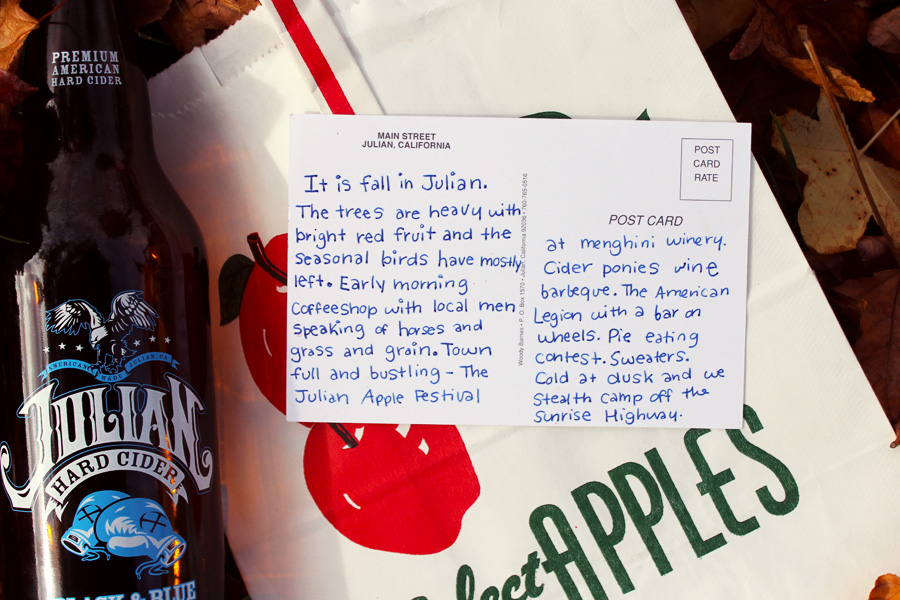 PREMIUM
AMERICAN
HARD CIDER
AMERICAN MADE JULIAN, CA
JULIAN
HARD CIDER
BLACK & BLUE
MAIN STREET
JULIAN, CALIFORNIA
It is fall in Julian.
The trees are heavy with
bright red fruit and the
seasonal birds have mostly
left. Early morning
Coffeeshop with local men
speaking of horses and
grass and grain. Town
full and bustling - The
Julian Apple Festival
Woody Barnes • P. O. Box 1570 • Julian, California 92036 • 760-765-0516
POST
CARD
RATE
POST CARD
at menghini winery.
Cider ponies wine
barbeque. The American
Legion with a bar on
wheels. Pie eating
contest. Sweaters.
Cold at dusk and we
Stealth camp off the
Sunrise Highway.
lect
APPLES